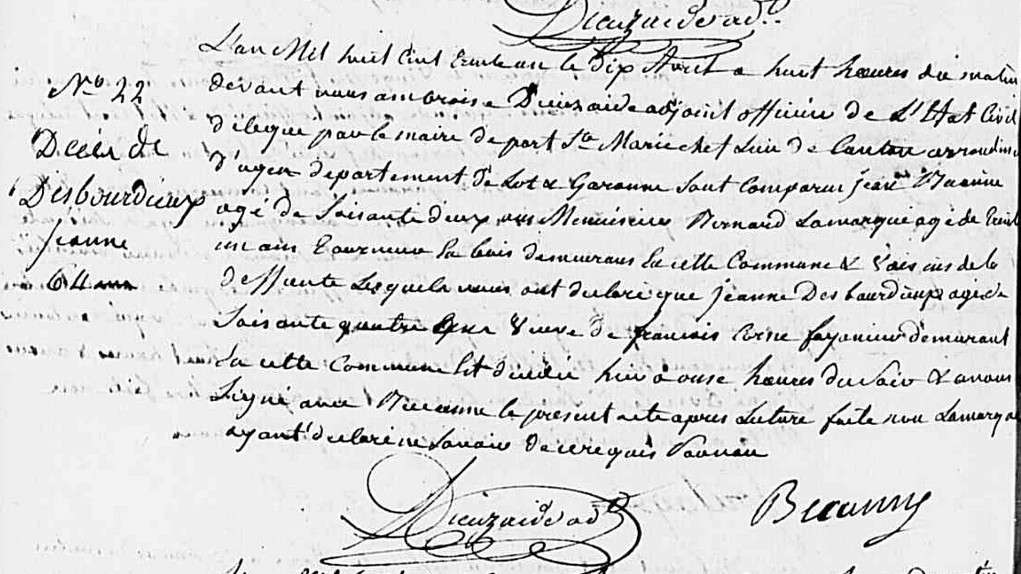 Dieuzaide adt.
L'an Mil huit Cent trente un le dix Avril a huit heures du matin
N° 22
devant nous ambroise Dieuzaide adjoint officier de L'Etat Civil
délégué par le maire de port Ste Marie chef Lieu de Canton arrondim
Décès de
d'agen departement de Lot & Garonne sont comparus jean
Desbourdieux
agé de soisante deux ans Menuisier Bernard Lamarque agé de trente
jeanne
un ans tourneur la bois demeurans la cette Commune & voisins de la
64 ans
deffunte Lesquels nous ont déclaré que jeanne Desbourdieux agé de
soisante quatre ans veuve de francois Corne fayencier demeurant
la cette Commune Est décédé hier à onse heures du soir & avons
signé avec le present acte apres Lecture faite non Lamarque
ayant déclaré ne savoir de ce requis
Dieuzaide adt